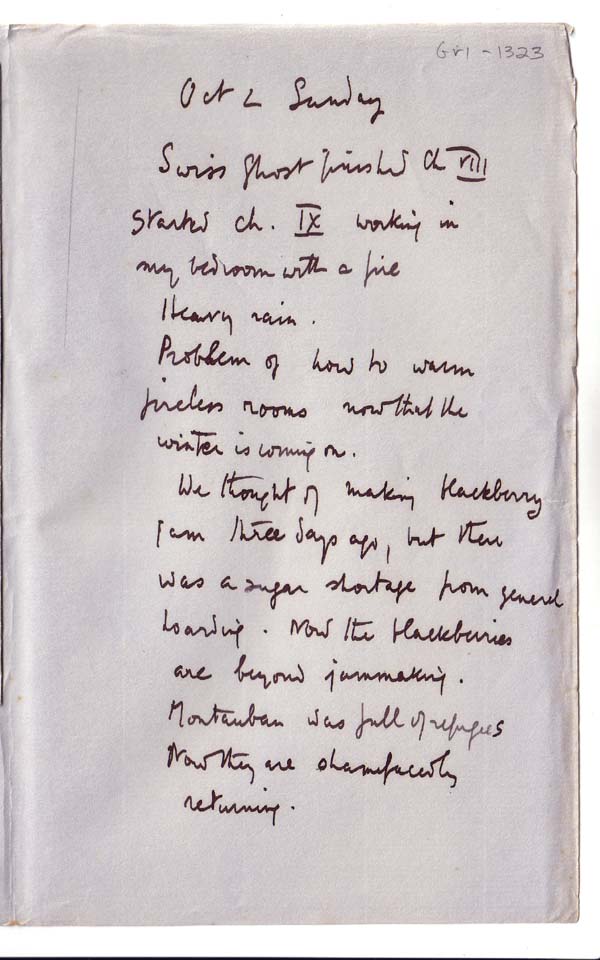 GVI - 1323
Oct 2 Sunday
Swiss Ghost finished Ch VIII
Started Ch. IX working in
my bedroom with a fire
Heavy rain.
Problem of how to warm
fireless rooms now that the
winter is coming on.
We thought of making blackberry
jam three days ago, but there
was a sugar shortage from general
hoarding. Now the blackberries
are beyond jammaking.
Montauban was full of refugees
Now they are shamefacedly
returning.